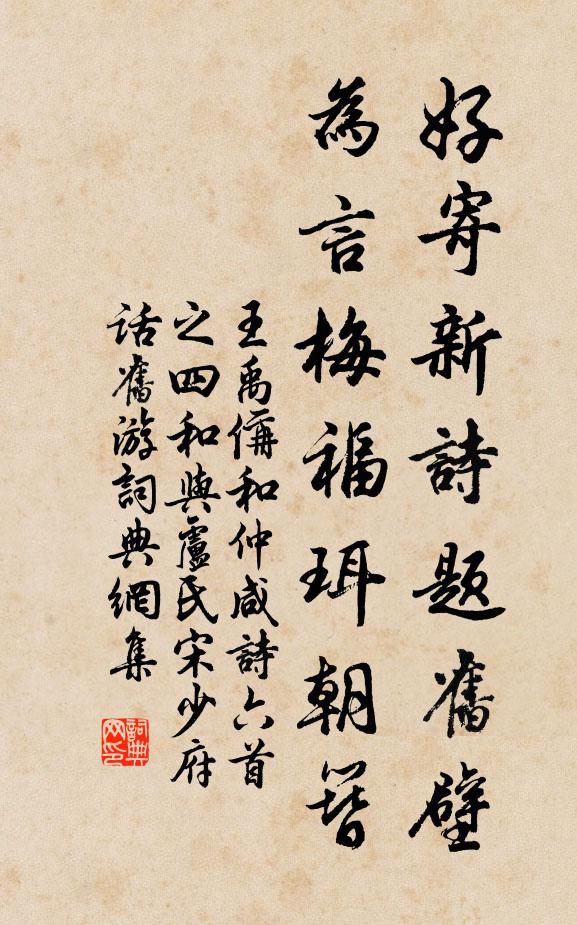 好寄新詩題舊壁
為言梅福珥朝簪
王禹偁和仲咸詩六首
之四和與盧氏宋少府
話舊游詞典網集
詞典网印